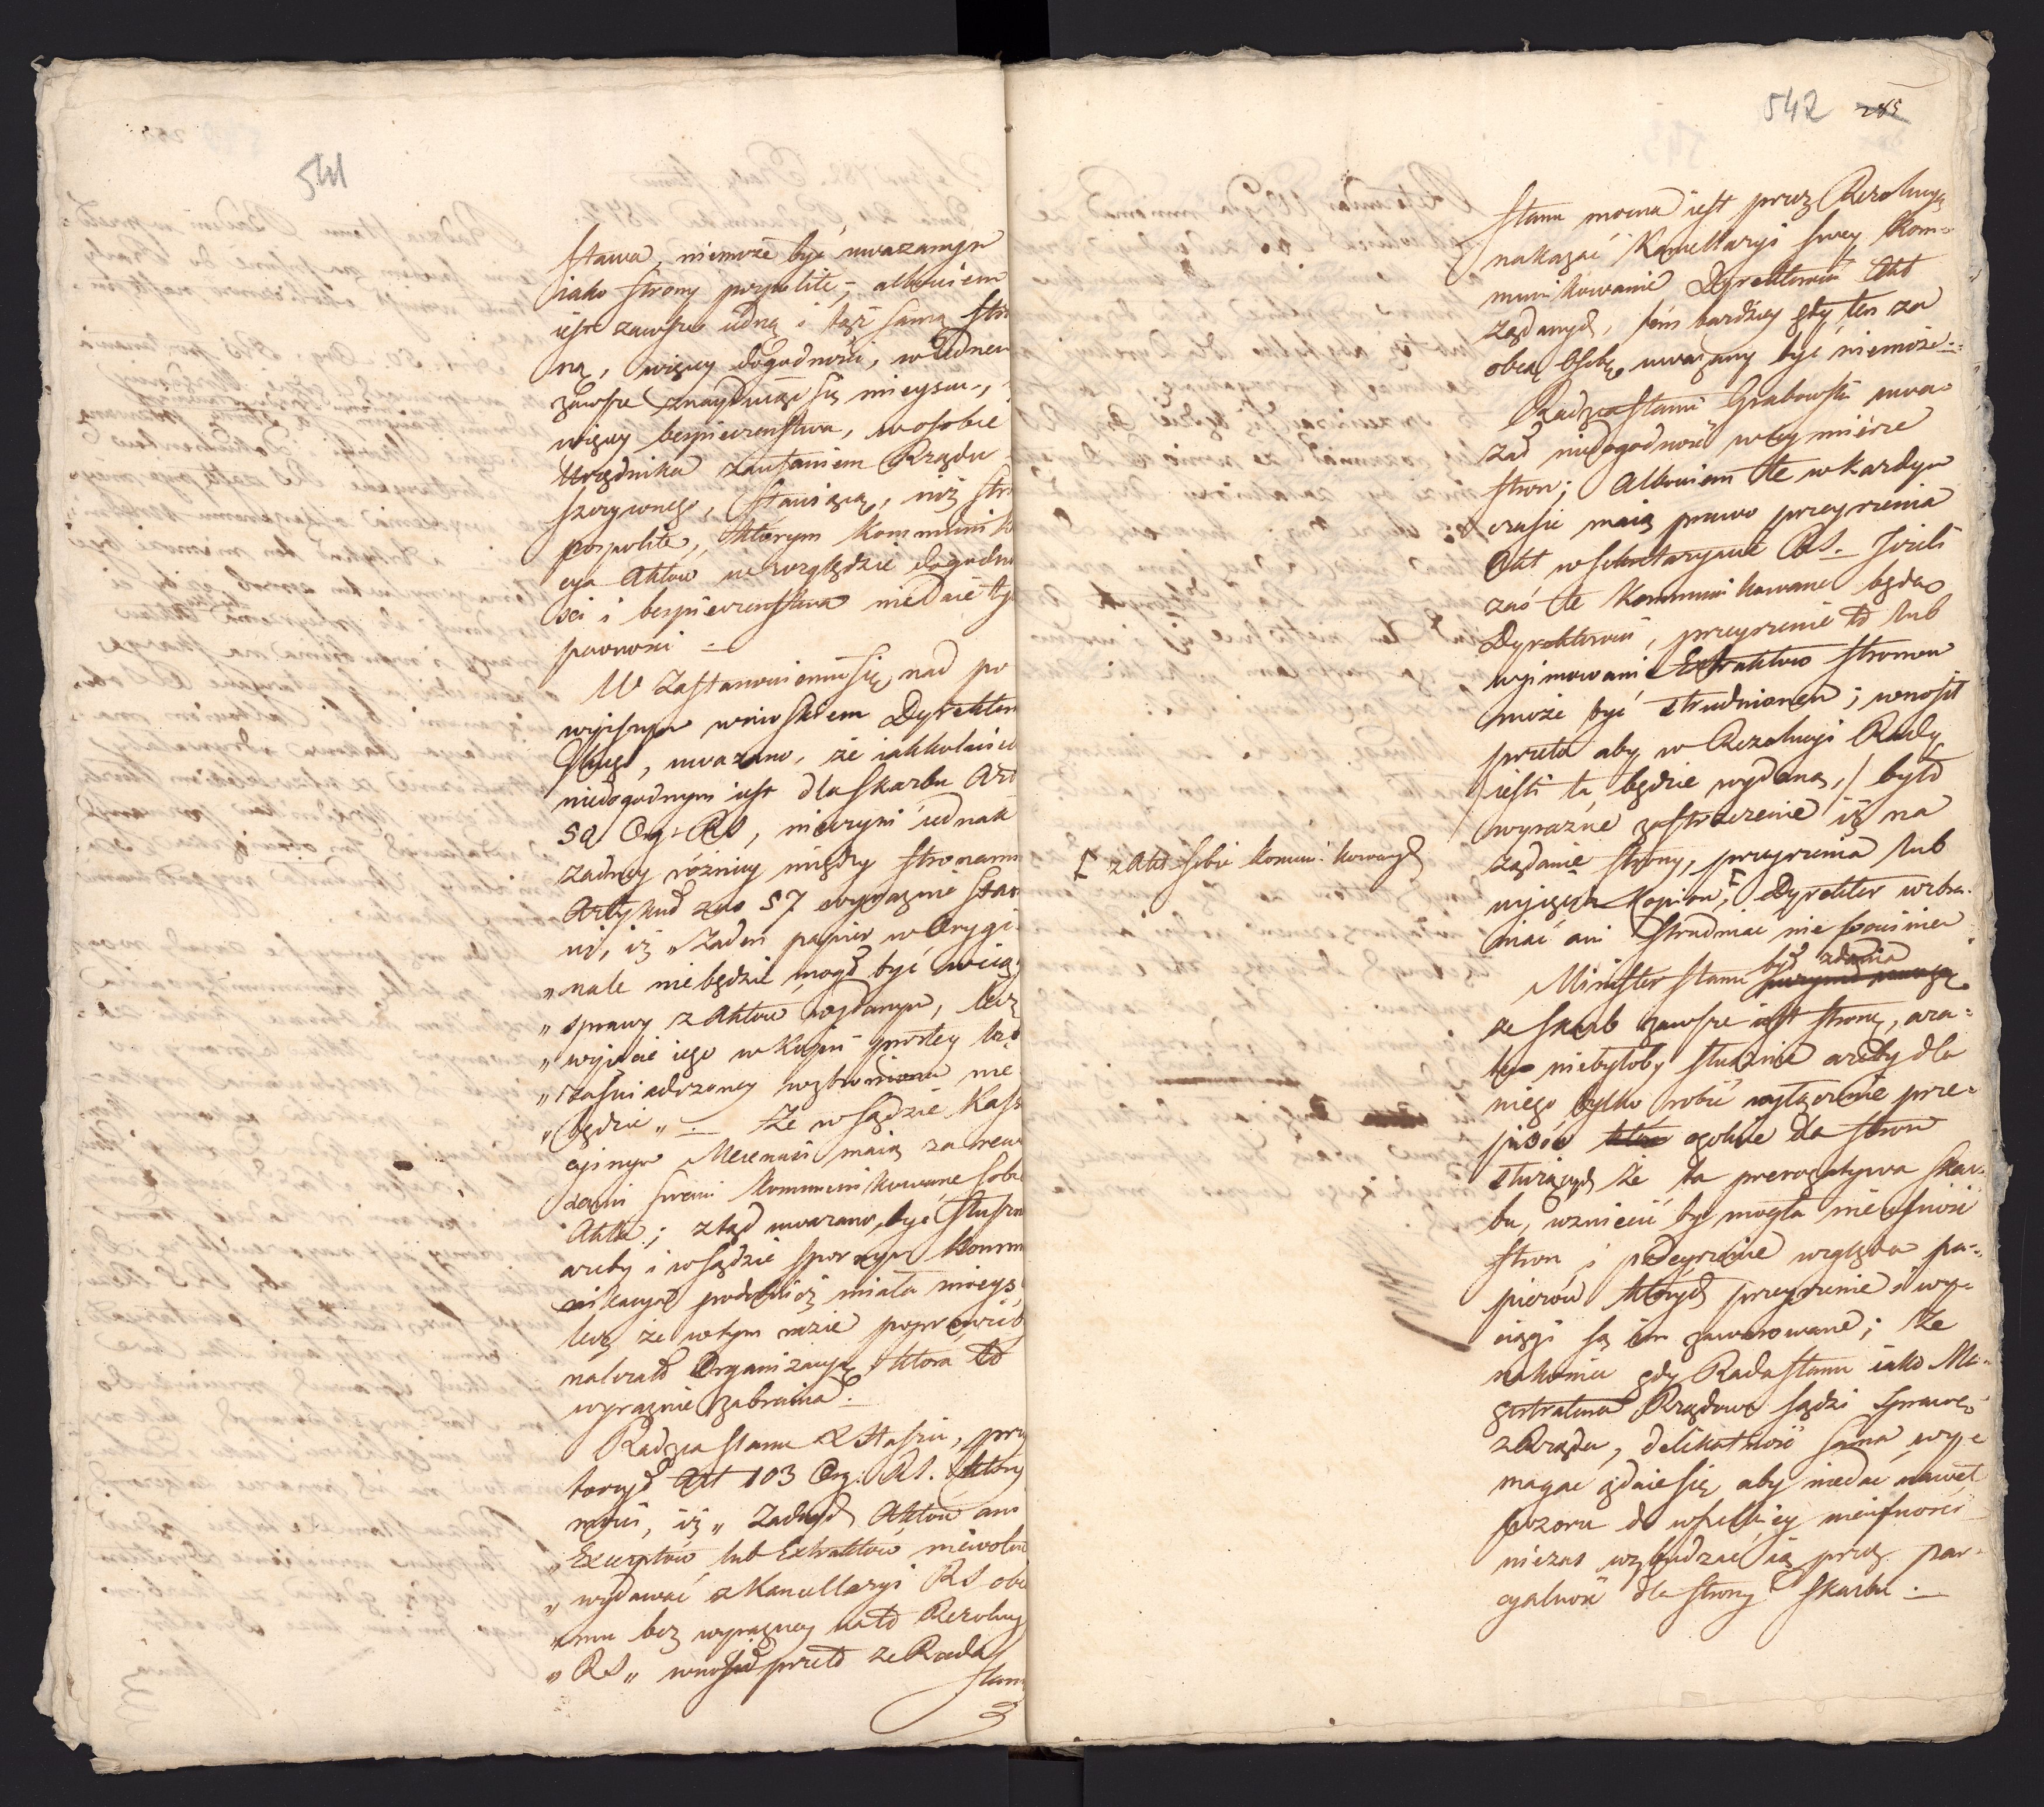 541
stawa, niemoże być uważanym
iako strony pospolite; albowiem
iest zawsze iedną i tąż samą stro
ną, więcey dogodności, w iednem
zawsze znayduiąc się mieyscu,
więcey bespieczenstwa, w osobie
Urzędnika zaufaniem Rządu
szczyconego, stawiącą, niż stro
pospolite, którym kommuniko
cya Aktów we względzie dogodno
ści i bespieczenstwa niedaie tyle
pewności —
W Zastanowieniu się nad po
wyższym wnioskiem Dyrektora
Sługi, uważano, że iakkolwiek
niedogodnym iest dla Skarbu Art
50 Org: RS, nieczyni iednak
żadney różnicy między stronami
Artykuł zaś 57 wyraźnie stano
wi, iż „Żaden papier w Orygi
„nale niebędzie mógł być wcią
„sprawy z Aktów wydanym, lecz
„wyięcie iego w Kopii prostey lub
„zaświadczoney wzbronione nie
„będzie„ — Że w Sądzie Kassa
cyinym Mecenasi maią za rewer
sami swemi kommunikowane sobie
Akta; ztąd uważano, być słuszn
ażeby i w Sądzie spornym kommu
nikacya podobnież miała mieysc
lecz że w tym razie poprawićb
należało Organizacyą która to
wyraźnie zabrania —
Radzca Stanu X Staszic, przy
toczył Art 103 Org: RS. który
mówi, iż „Żadnych Aktów ani
„Excerptów lub Extraktów niewolno
„wydawać z Kancellaryi RS obc
„mu bez wyraźney na to Rezolucy
„RS„ wnosił przeto że Rada
Stanu
542 285
Stanu mocna iest przez Rezolucyą
nakazać Kancellaryi swey kom-
munikowanie Dyrektorowi Akt
żądanych, tém bardziey gdy ten za
obcą Osobę uważany być niemoże —
Radzca Stanu Grabowski uwa-
żał niedogodność w tey mierze
stron; Albowiem te w każdym
czasie maią prawo przeyrzenia
Akt w Sekretaryacie RS. Jeżeli
zaś te kommunikowane będą
Dyrektorowi, przeyrzenie to lub
wyimowanie Extraktów stronom
może być utrudnionem; wnosił
przeto aby w Rezolucyi Rady
/ieśli ta będzie wydana,/ było
wyraźne zastrzeżenie iż na
żądanie strony, przeyrzenia lub
wyięcia Kopiów, Dyrektor wzbra-
niać ani utrudniać nie powinien
[ z Akt sobie kommunikowanych
Minister Stanu był zdania
że Skarb zawsze iest stroną, a za-
tem niebyłoby słusznie ażeby dla
niego tylko robić wyłączenie prze-
pisów ogólnie dla stron
służących że ta prerogatywa Skar-
bu, wzniecić by mogła nieufność
stron i podeyrzenie względem pa-
pierów których przeyrzenie i wy-
ciągi są im zawarowane; że
nakoniec gdy Rada Stanu iako Ma-
gistratura Rządowa sądzi sprawę
z Rządu, delikatność sama wy-
magać zdaie się aby niedać nawet
pozoru do wszelkiey nieufności
nie zaś wzbudzać ią przez par-
cyalność dla strony Skarbu —